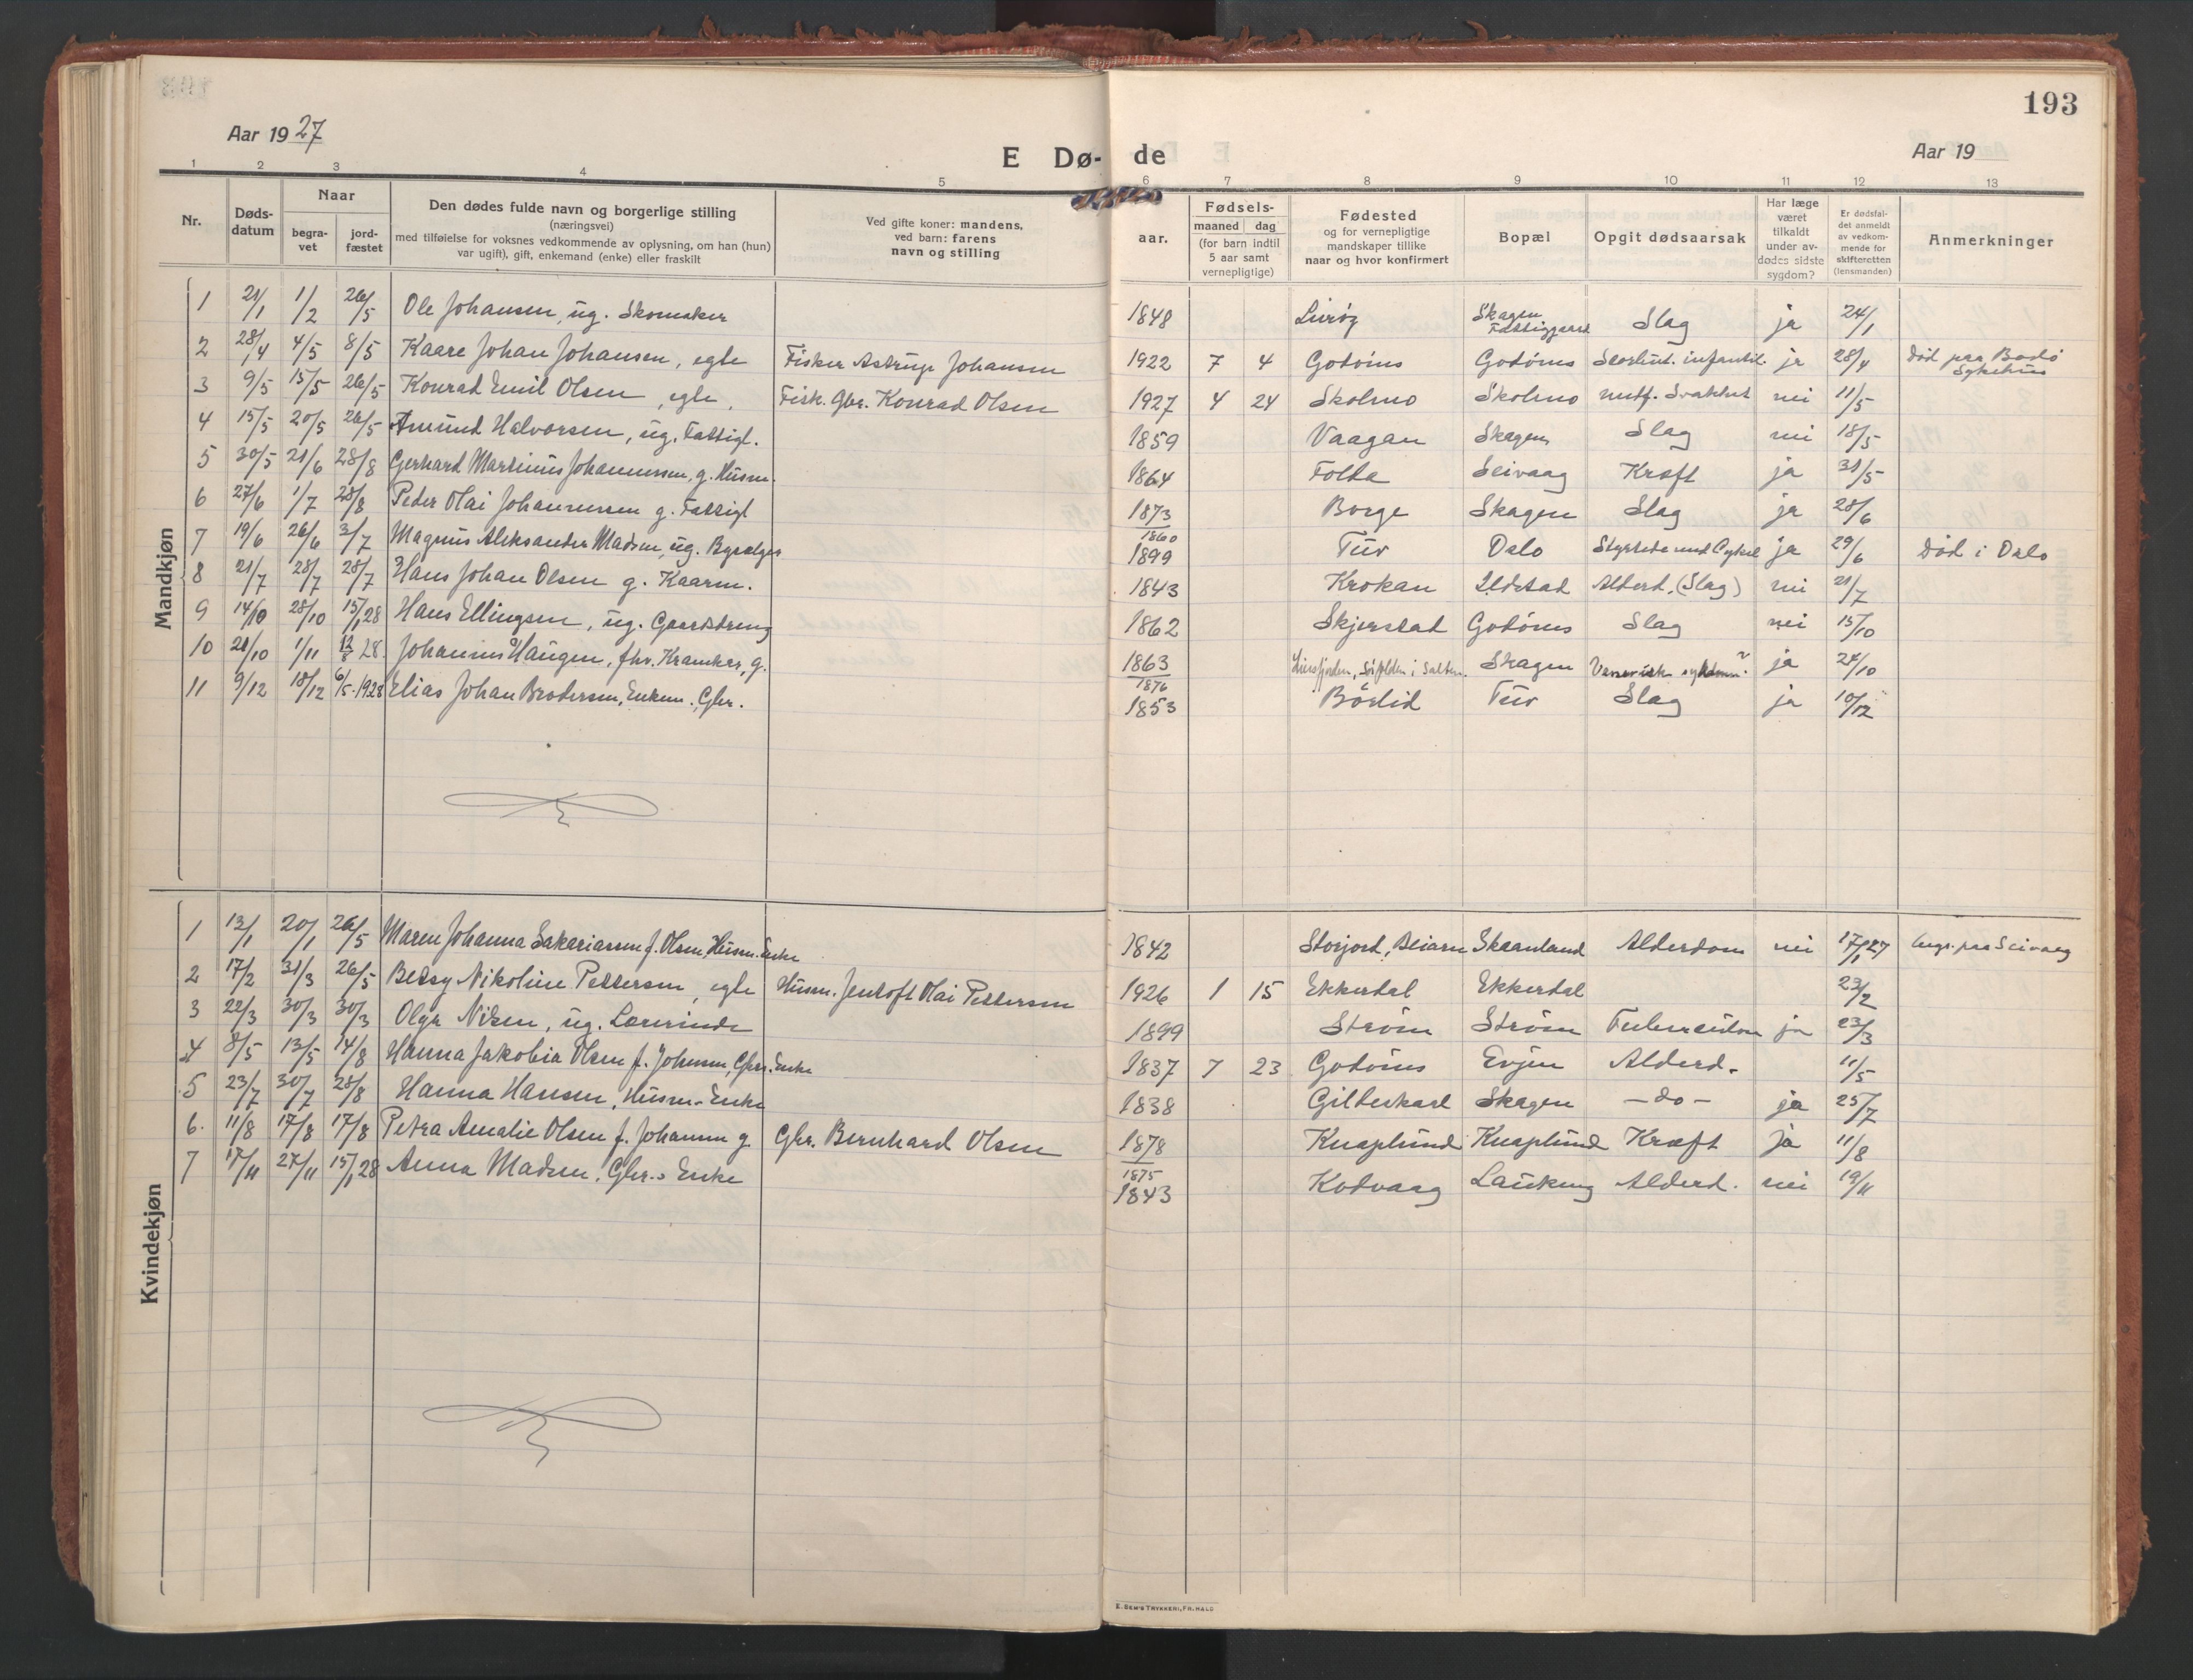 193
Aar 1927
E Dø- de
Aar 19
1 2 3 4 5 6 7 8 9 10 11 12 13
Nr.
Døds-
datum
Naar
begra-
vet
jord-
fæstet
Den dødes fulde navn og borgerlige stilling
(næringsvei)
med tilføielse for voksnes vedkommende av oplysning, om han (hun)
var ugift), gift, enkemand (enke) eller fraskilt
Ved gifte koner: mandens,
ved barn: farens
navn og stilling
aar.
Fødsels-
maaned dag
(for barn indtil
5 aar samt
vernepligtige)
Fødested
og for vernepligtige
mandskaper tillike
naar og hvor konfirmert
Bopæl
Opgit dødsaarsak
Har læge
været
tilkaldt
under av-
dødes sidste
sygdom?
Er dødsfal-
det anmeldt
av vedkom-
mende for
skifteretten
(lensmanden)
Anmerkninger
Mandkjøn
1 21/1 1/2 26/5 Ole Johansen, ug. Skomaker 1848 Skagen Fattiggaard Slag ja 24/1
2 28/4 4/5 8/5 Kaare Johan Johansen, egte Fisker Astrup Johansen 1922 7 4 Godønes Godønes infantil. ja 28/4 Død paa Bodø Sykehus
3 9/5 15/5 26/5 Konrad Emil Olsen, egte, Fisk. Gbr. Konrad Olsen 1927 4 24 Skolmo Skolmo medf. Svakhet nei 11/5
4 15/5 20/5 26/5 Amund Halvorsen, ug. Fattigl. 1859 Vaagan Skagen Slag nei 18/5
5 30/5 21/6 28/8 Gerhard Martinus Johannessen, g. Husm. 1864 Folda Seivaag Kræft ja 31/5
6 27/6 1/7 28/8 Peder Olai Johannessen g. Fattigl 1873 Borge Skagen Slag ja 28/6
7 19/6 26/6 3/7 Magnus Aleksander Madsen, ug. 1860 1899 Tuv Oslo Styrtede med Cykel ja 29/6 Død i Oslo
8 21/7 28/7 28/7 Hans Johan Olsen g. Kaarm. 1843 Krokan Ildstad Alderd. (Slag) nei 21/7
9 14/10 28/10 15/1 28 Hans Ellingsen, ug. Gaardsdreng 1862 Skjerstad Godønes Slag nei 15/10
10 21/10 1/11 12/8 28. Johannes Haugen, fhv. Kramkar, g. 1863 Sørfolden i Salten. Skagen Venerisk sykdom? ja 24/10
11 9/12 18/12 6/5.1928 Elias Johan Brodersen, Enkem. Gbr. 1876 1853 Børlid Tuv Slag ja 10/12
Kvindekjøn
1 13/1 20/1 26/5 Maren Johanna Sakariassen f. Olsen, Husm. Enke 1842 Storjord, Beiarn Skaanland Alderdom nei 17/1 27 begr. paa Seivaag
2 17/2 31/3 26/5 Betsy Nikoline Pettersen, egte Husm. Jentoft Olai Pettersen 1926 1 15 Ekkerdal Ekkerdal 23/2
3 22/3 30/3 30/3 Olga Nilsen, ug. Lærerinde 1899 Strøm Strøm ja 23/3
4 8/5 13/5 14/8 Hanna Jakobia Olsen f. Johnsen, Gbr. Enke 1837 7 23 Godønes Evjen Alderd. 11/5
5 23/7 30/7 28/8 Hanna Hansen, Husm. Enke 1838 Gildeskaal Skagen - do - ja 25/7
6. 11/8 17/8 17/8 Petra Amalie Olsen f. Johansen g. Gbr. Bernhard Olsen 1878 Knaplund Knaplund Kræft ja 11/8
7 17/11 27/11 15/1 28 Anna Madsen, Gbr. Enke 1875 1843 Kodvaag Laukeng Alderd. nei 19/11
E. SEM'S TRYKKERI, FR.HALD